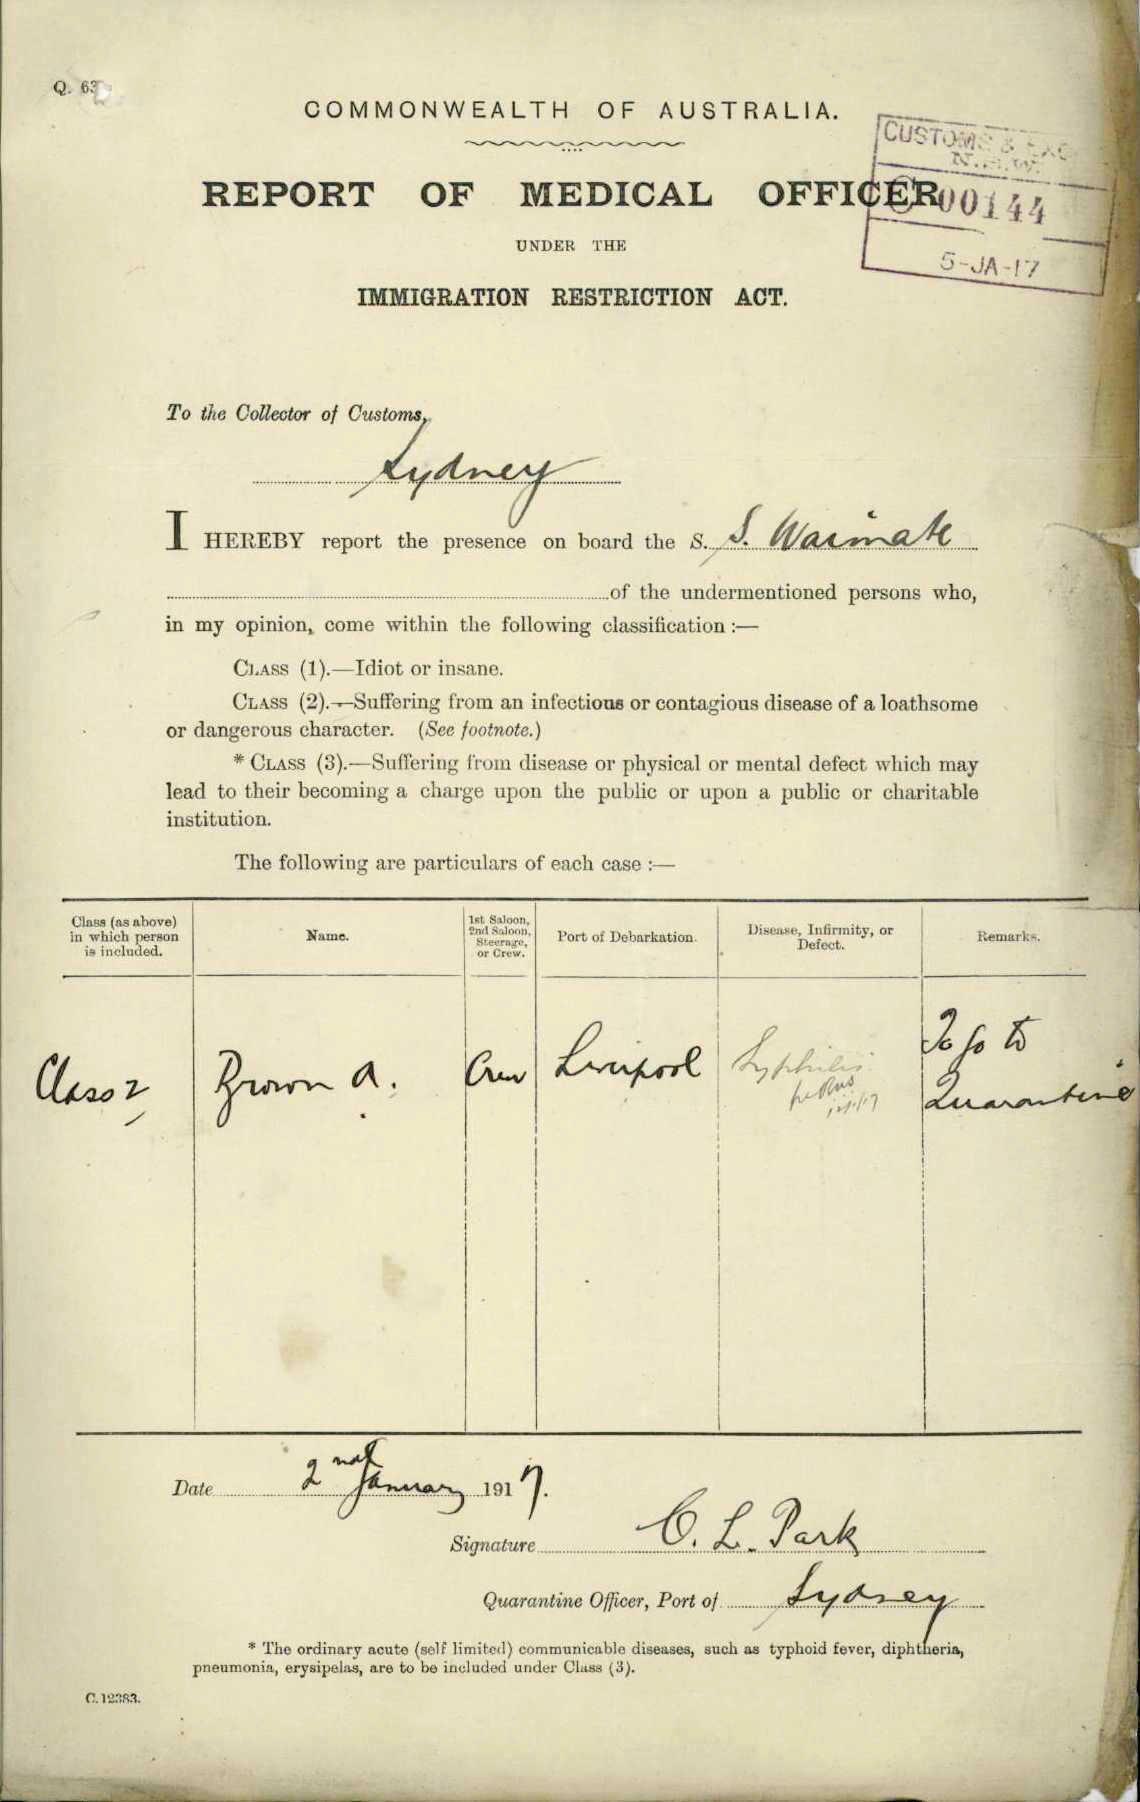 Q. 63
COMMONWEALTH OF AUSTRALIA.
CUSTOMS & EXC
N.S.W.
00144
5-JA-17
REPORT OF MEDICAL OFFICER
UNDER THE
IMMIGRATION RESTRICTION ACT.
To the Collector of Customs,
Sydney
I HEREBY report the presence on board the S. S. Waimate
of the undermentioned persons who,
in my opinion, come within the following classification :—
CLASS (1).—Idiot or insane.
CLASS (2).—Suffering from an infectious or contagious disease of a loathsome
or dangerous character. (See footnote.)
* CLASS (3).—Suffering from disease or physical or mental defect which may
lead to their becoming a charge upon the public or upon a public or charitable
institution.
The following are particulars of each case :—
Class (as above)
in which person
is included.
Name.
1st Saloon,
2nd Saloon,
Steerage,
or Crew.
Port of Debarkation.
Disease, Infirmity, or
Defect.
Remarks.
Class 2
Brown A.
Crew
Liverpool
Syphilis
To go to
Quarantine
Date 2nd January 1917.
Signature C. L. Park
Quarantine Officer, Port of Sydney
* The ordinary acute (self limited) communicable diseases, such as typhoid fever, diphtheria,
pneumonia, erysipelas, are to be included under Class (3).
C.12383.